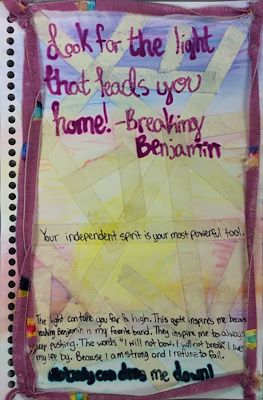 Look for the light
that leads you
home! -Breaking
Benjamin
Your independent spirit is your most powerful tool.
The light can take you far & high. This quote inspires me because
Breaking Benjamin is my favorite band. They inspire me to always
keep pushing. The words "I will not bow. I will not break" I live
my life by. Because I am strong and I refuse to fail.
Nobody can drag me down!